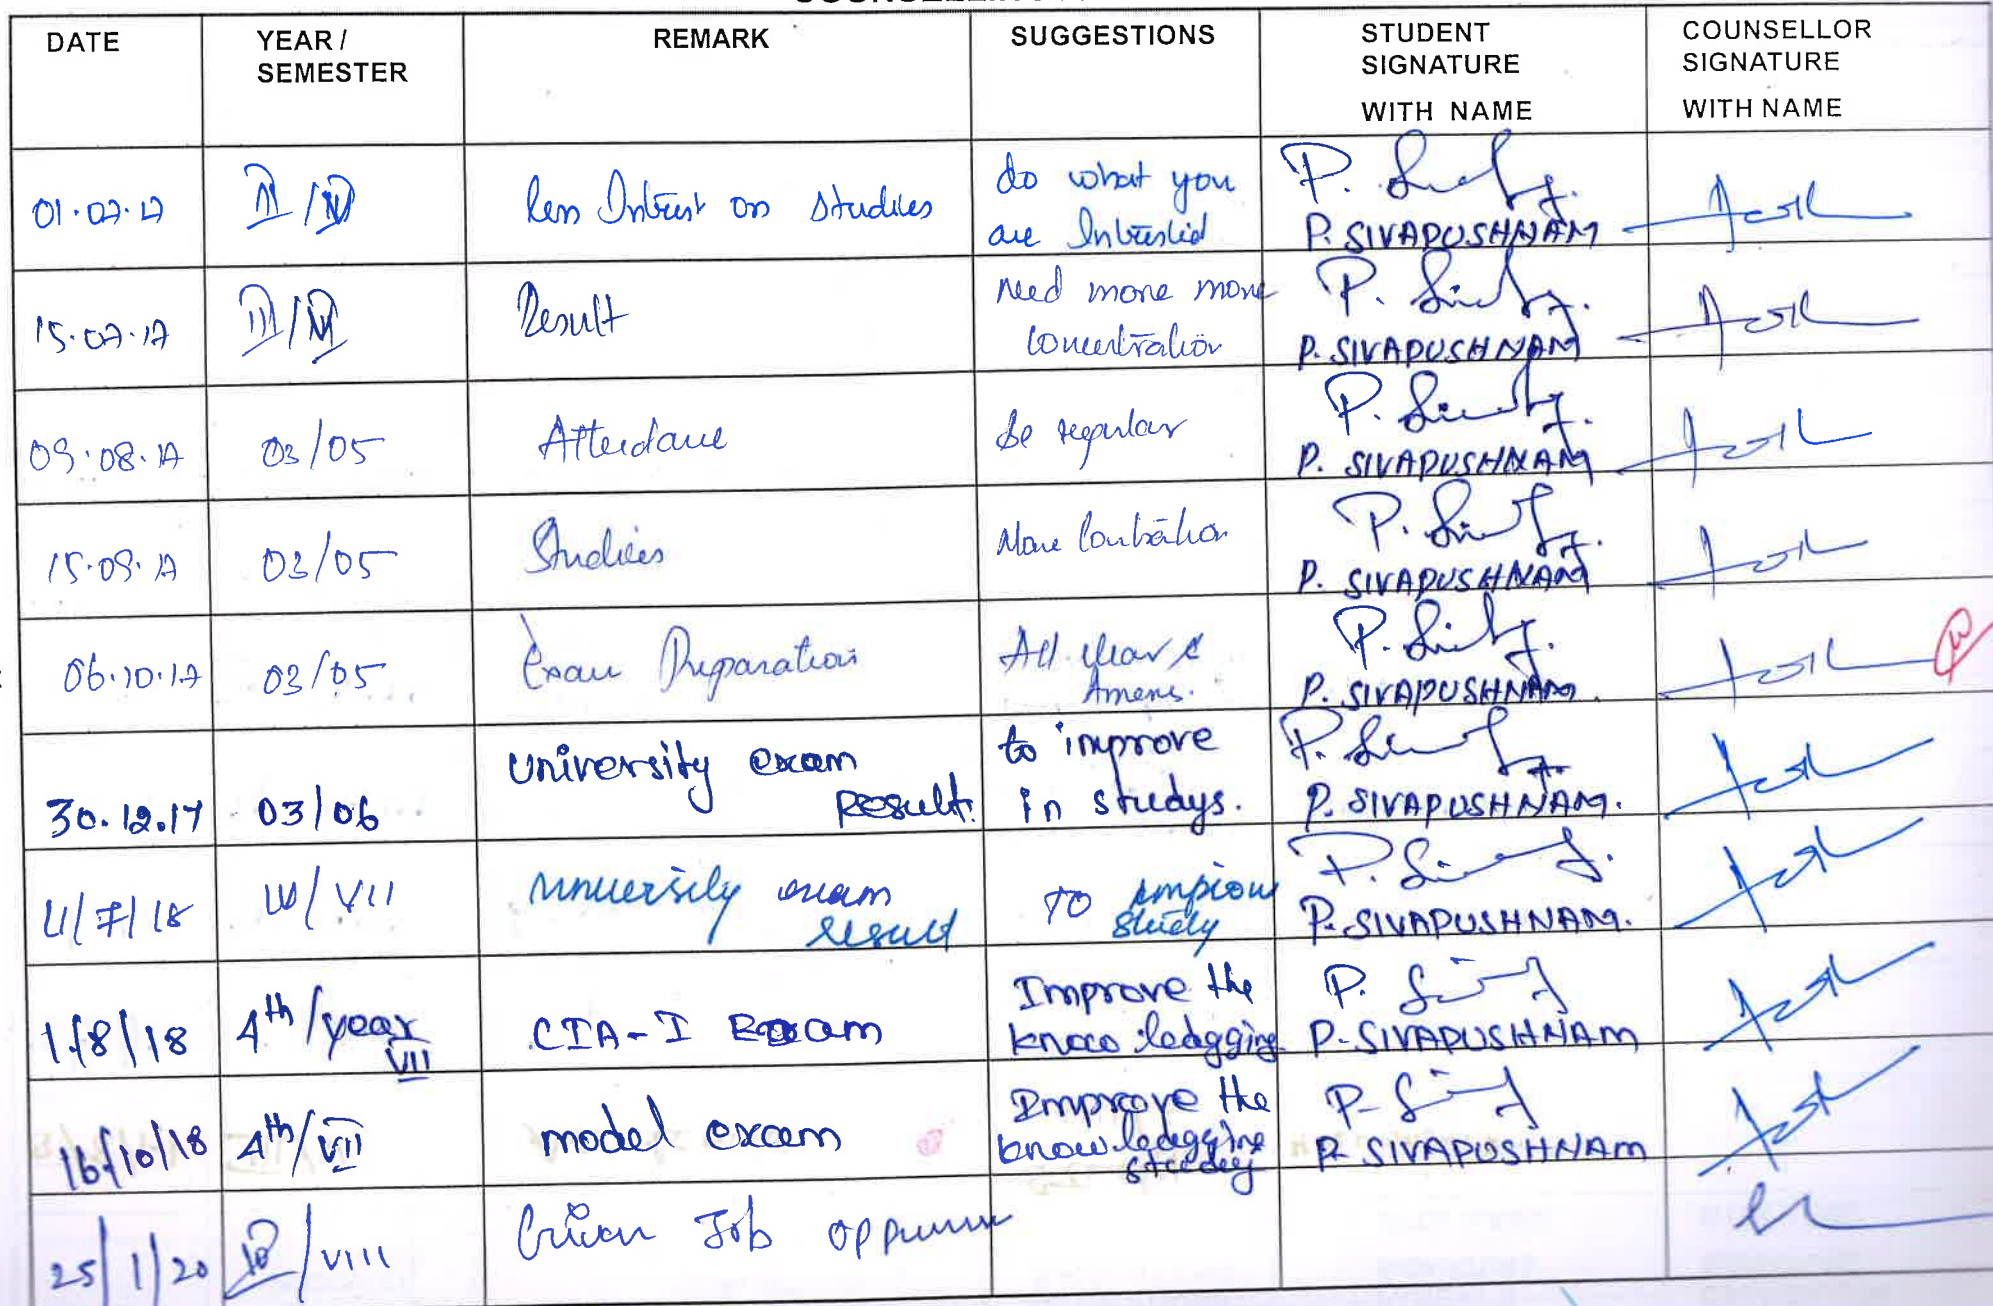 DATE
YEAR /
SEMESTER
REMARK
SUGGESTIONS
STUDENT
SIGNATURE
WITH NAME
COUNSELLOR
SIGNATURE
WITH NAME
01.07.17
less Intrust on studies
do what you
are Intrustid
P. SIVAPUSHNAM
15.07.17
Result
Need more more
concentration
P. SIVAPUSHNAM
09.08.17
03/05
Attendance
be regular
P. SIVAPUSHNAM
15.09.17
03/05
Studies
More
P. SIVAPUSHNAM
06.10.17
03/05
Exam Preparation
All clear
P. SIVAPUSHNAM.
30.12.17
03/06
University exam
Result.
to improve
in studys.
P. SIVAPUSHNAM.
4/7/18
IV/VII
university exam
result
TO
study
P. SIVAPUSHNAM.
1/8/18
4th/year
VII
CIA-I Exam
Improve the
know ledgging
P. SIVAPUSHNAM
16/10/18
4th/VII
model exam
Improve the
know ledgging
study
P. SIVAPUSHNAM
25/1/20
IV/VIII
Job